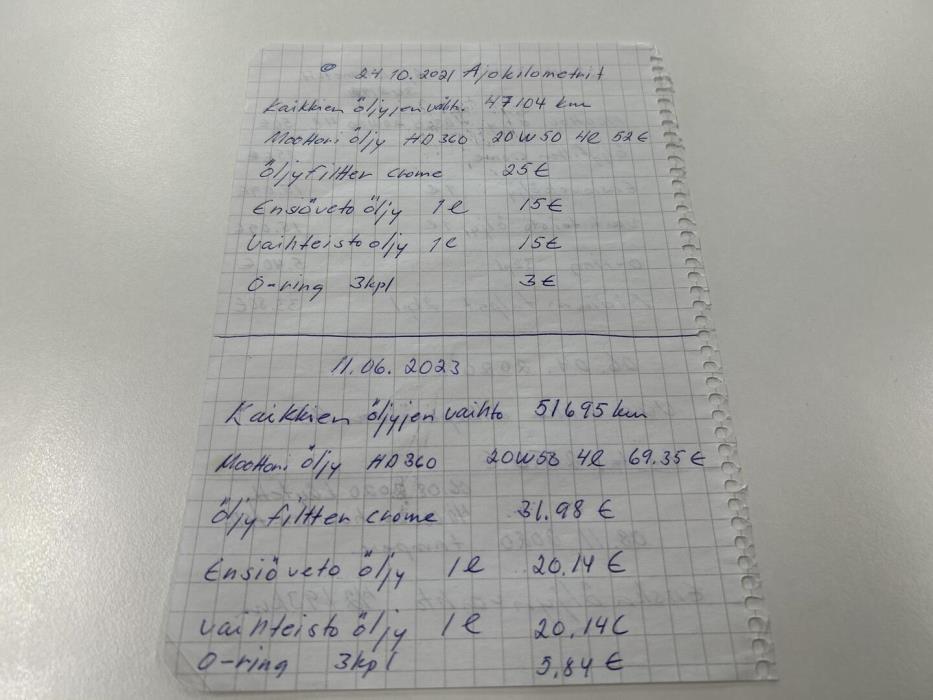 24.10.2021 Ajokilometrit
Kaikkien öljyjen vaihto 47104 km
Moottori öljy HD360 20W50 4l 52€
Öljyfiltter crome 25€
Ensiöveto öljy 1l 15€
Vaihteisto öljy 1l 15€
O-ring 3kpl 3€
11.06.2023
Kaikkien öljyjen vaihto 51695 km
Moottori öljy HD360 20W50 4l 69.35€
Öljy filtter crome 31.98 €
Ensiöveto öljy 1l 20.14 €
Vaihteisto öljy 1l 20.14€
O-ring 3kpl 5,84 €